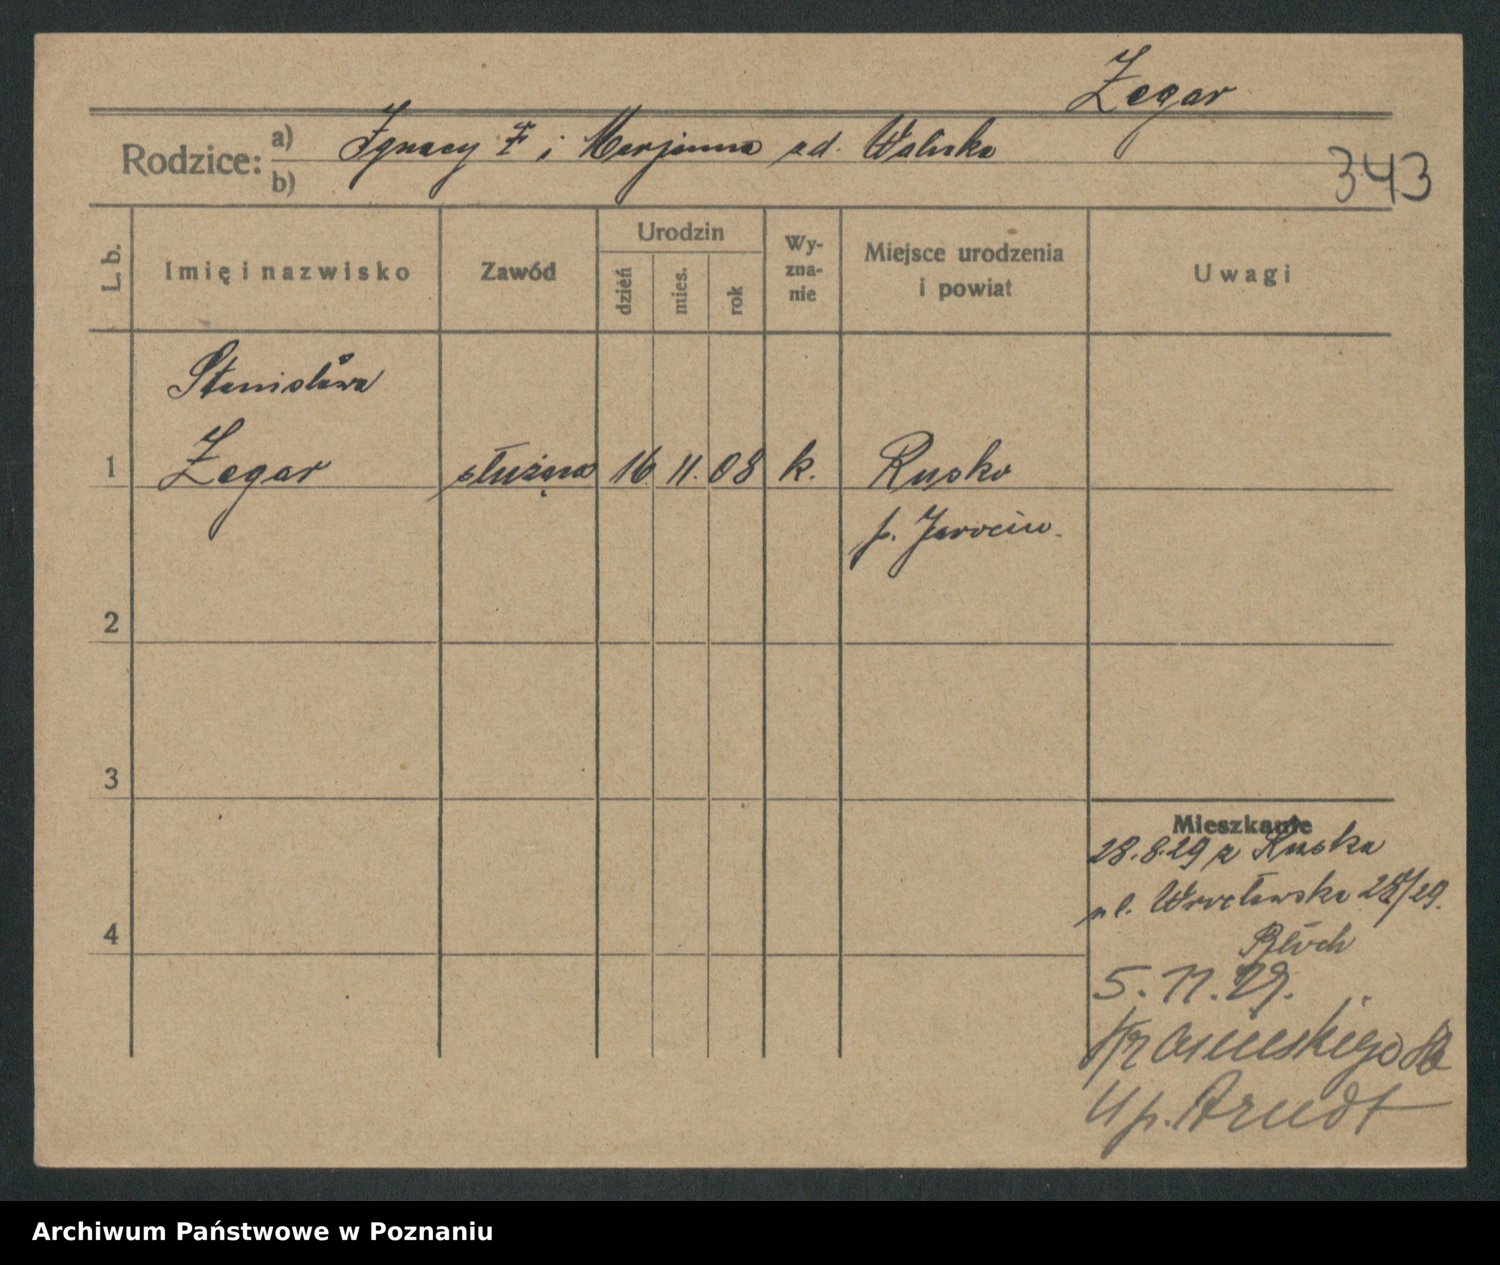 Zegar
Rodzice: a) Ignacy i Marjanna
b)
343
L. b.
Imię i nazwisko
Zawód
Urodzin
dzień
mies.
rok
Wy-
zna-
nie
Miejsce urodzenia
i powiat
Uwagi
Stanisława
1 Zegar służąca 16 11. 08 k. Rusko
p. Jarocin.
2
3
4
Mieszkanie
28.8.29 z Ruska
ul. Wrocławska /29.
Bloch
5. 11. 29.
Krasińskiego
u p. Arndt
Archiwum Państwowe w Poznaniu